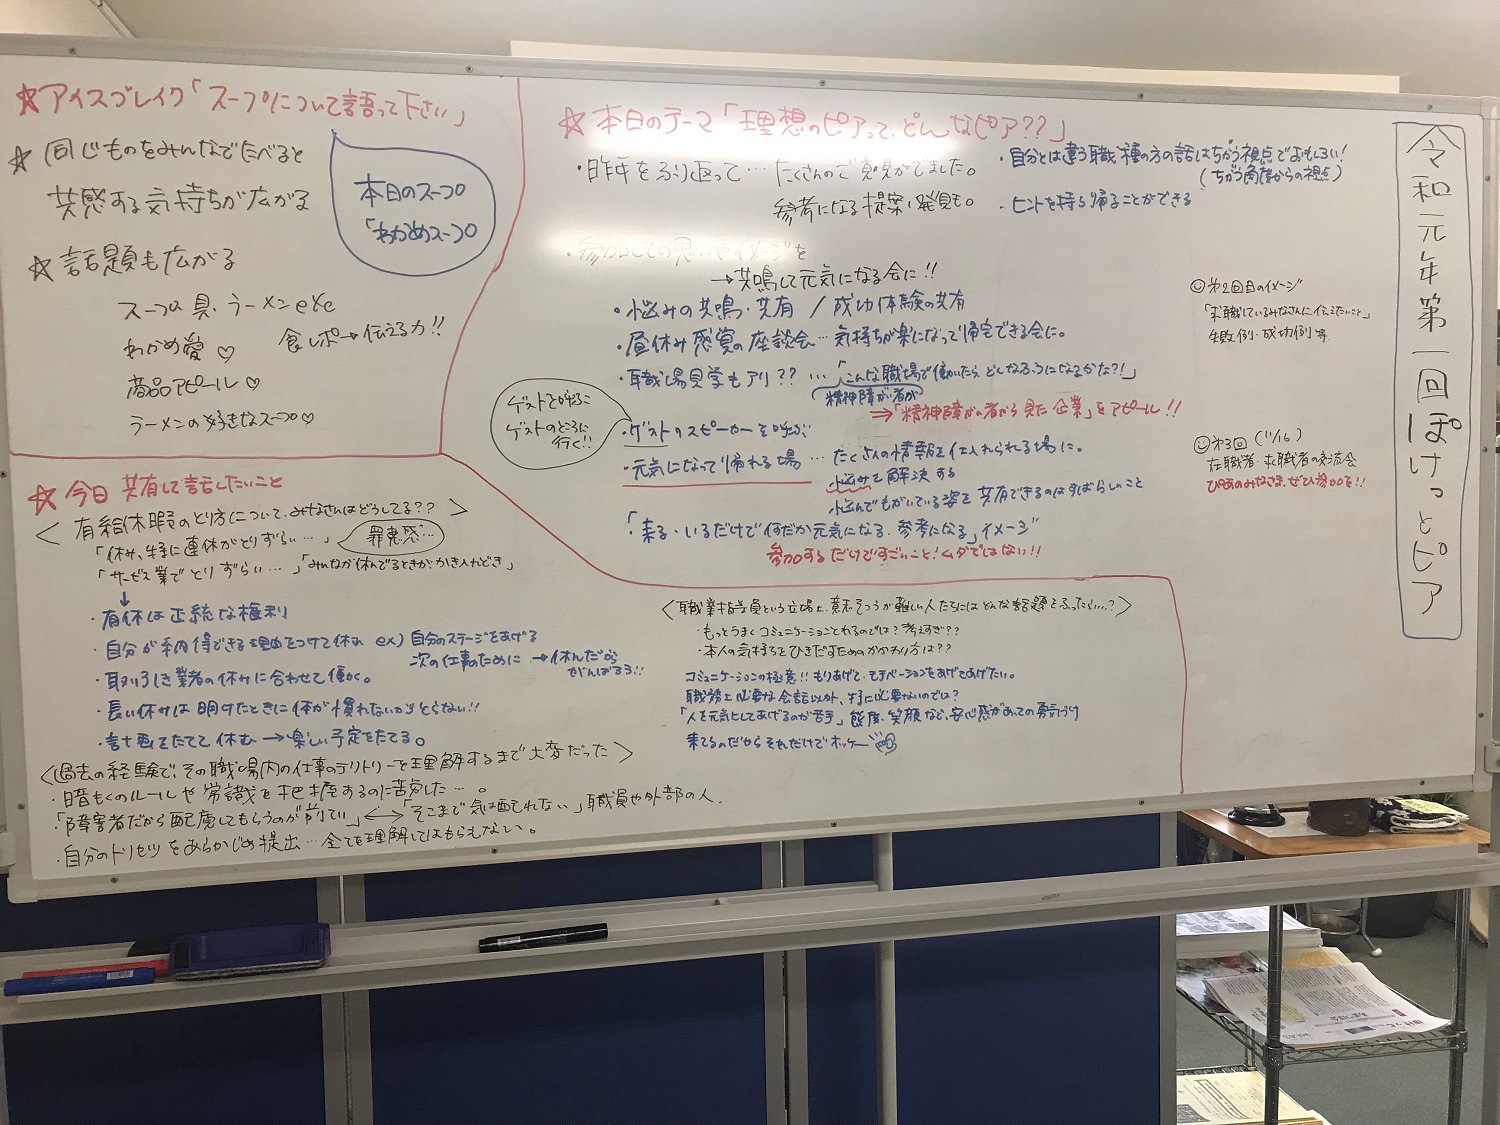 令和元年第一回ぽけっとピア
☆アイスブレイク「スープについて語って下さい」
☆同じものをみんなでたべると
共感する気持ちが広がる
☆話題も広がる
スープの具・ラーメンetc
わかめ愛♡
商品アピール♡
ラーメンの好きなスープ♡
食レポ→伝える力!!
本日のスープ
「わかめスープ」
☆本日のテーマ「理想のピアって、どんなピア??」
・昨年をふり返って…たくさんのご意見がでました。
参考になる提案・発見も。
・自分とは違う職種の方の話はちがう視点でおもしろい!
(ちがう角度からの視点)
・ヒントを持ち帰ることができる
・参加しての思いやイメージを
→共鳴して元気になる会に!!
・悩みの共鳴・共有/成功体験の共有
・昼休み感覚の座談会…気持ちが楽になって帰宅できる会に。
・職場見学もアリ??…「こんな職場で働いたらどんなふうになるかな?!」
精神障がい者が
⇒「精神障がい者から見た企業」をアピール!!
ゲストをよぶ
ゲストのところに
行く!!
・ゲストのスピーカーを呼ぶ
・元気になって帰れる場…たくさんの情報を仕入れられる場に。
悩みを解決する
悩んでもがいている姿を共有できるのはすばらしいこと
「来る・いるだけで何だか元気になる・参考になる」イメージ
参加するだけですごいこと!ムダではない!!
☺第2回目のイメージ
「求職しているみなさんに伝えたいこと」
失敗例・成功例等
☺第3回(11/16)
在職者・求職者の交流会
みなさま、ぜひ参加を!!
☆今日共有して話したいこと
<有給休暇のとり方について、みなさんはどうしてる??>
「休み、特に連休がとりずらい…」
罪悪感…
「サービス業でとりずらい…」「みんなが休んでるときが、かき入れどき」
↓
・有休は正統な権利
・自分が納得できる理由をつけて休む ex)自分のステージをあげる
次の仕事のために→休んだから
がんばろう!!
・取り引き業者の休みに合わせて働く。
・長い休みは明けたときに体が慣れないからとらない!!
・計画をたてて休む→楽しい予定をたてる。
<過去の経験で、その職場内の仕事のテリトリーを理解するまで大変だった>
・暗もくのルールや常識を把握するのに苦労した…。
「障害者だから配慮してもらうのが前てい」⟷「そこまで気は配れない」職員や外部の人.
・自分のトリセツをあらかじめ提出…全てを理解してはもらえない。
<職業指導員という立場上、意志そつうが難しい人たちにはどんな話題をふったらいい?>
・もっとうまくコミュニケーションとれるのでは?考えすぎ??
・本人の気持ちをひきだすためのかかわり方は??
コミュニケーションの極意!!もりあげて・モチベーションをあげてあげたい。
職務上必要な会話以外、特に必要ないのでは?
「人を元気にしてあげるのが苦手」態度・笑顔など、安心感があっての勇気づけ
来てるのだからそれだけでオッケー